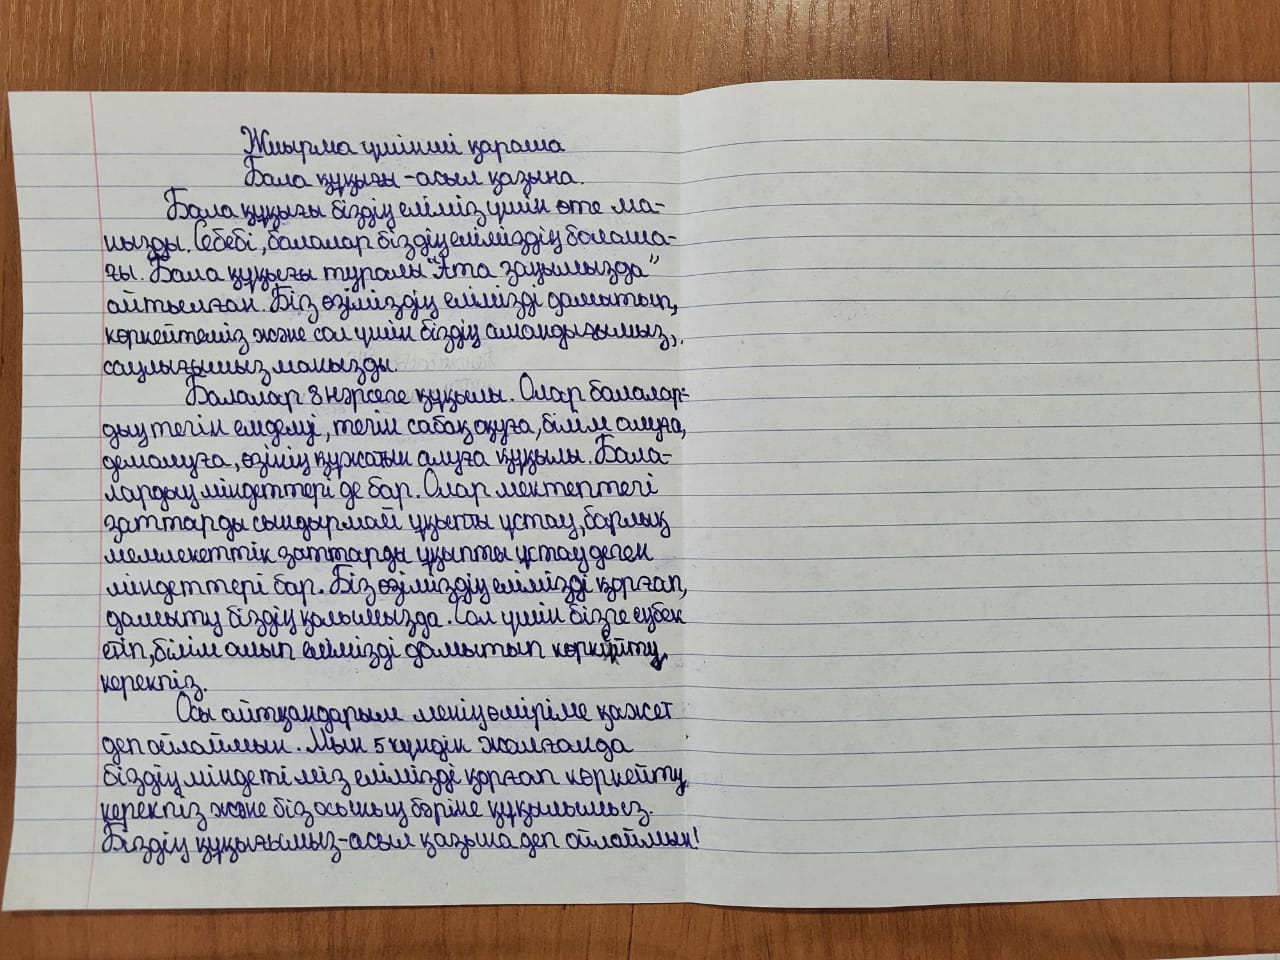 Жиырма үшінші қараша
Бала құқығы - асыл қазына.
Бала құқығы біздің еліміз үшін өте ма-
ңызды. Себебі, балалар біздің еліміздің болаша-
ғы. Бала құқығы туралы "Ата заңымызда"
айтылған. Біз өзіміздің елімізді дамытып,
көркейтеміз және сол үшін біздің амандығымыз,
саулығымыз маңызды.
Балалар 8 нәрсеге құқылы. Олар балалар-
дың тегін емделуі, тегін сабақ оқуға, білім алуға,
демалуға, өзінің құжатын алуға құқылы. Бала-
лардың міндеттері де бар. Олар мектептегі
заттарды сындырмай ұқыпты ұстау, барлық
мемлекеттік заттарды ұқыпты ұстау деген
міндеттері бар. Біз өзіміздің елімізді қорғап,
дамыту біздің қолымызда. Сол үшін бізге еңбек
етіп, білім алып елімізді дамытып көркейту
керекпіз.
Осы айтқандарым менің өміріме қажет
деп ойлаймын. Мын 5 күндік жалғанда
біздің міндетіміз елімізді қорғап көркейту
керекпіз және біз осының бәріне құқылымыз.
Біздің құқығымыз - асыл қазына деп ойлаймын!